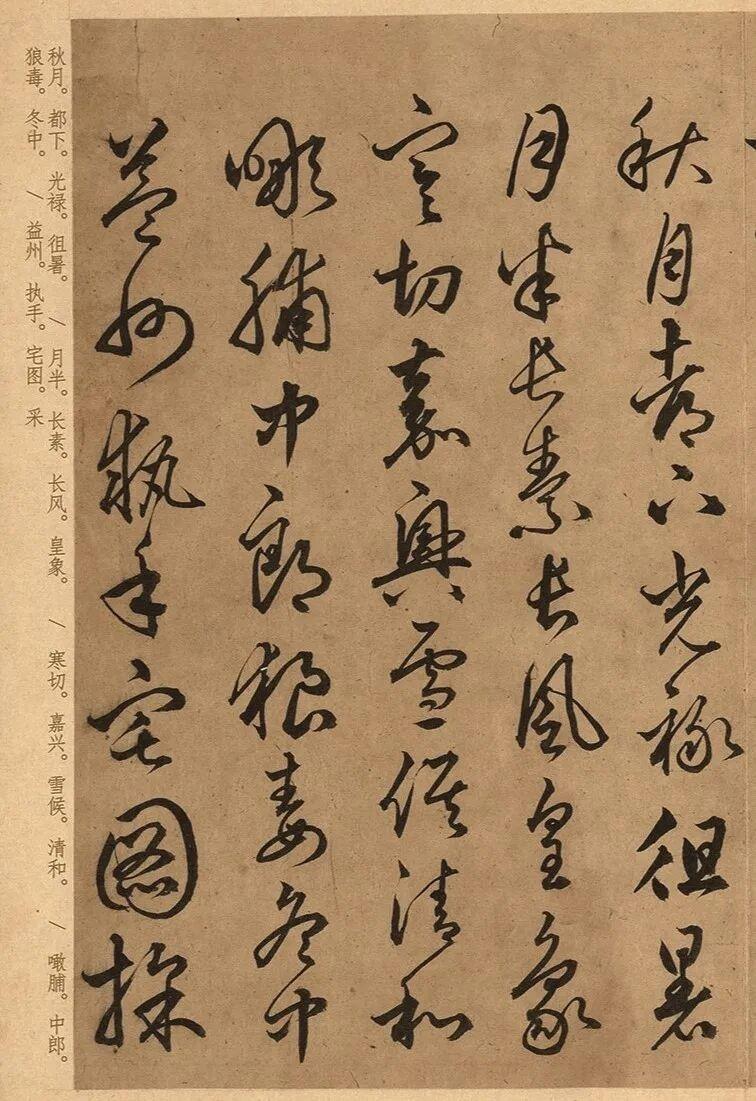 秋月都下光禄徂暑
月半长素长风皇象
寒切嘉興雪候清和
噉脯中郎狼毒冬中
益州执手宅图採
秋月。都下。光禄。徂暑。/月半。长素。长风。皇象。/寒切。嘉兴。雪候。清和。/噉脯。中郎。
狼毒。冬中。/益州。执手。宅图。采